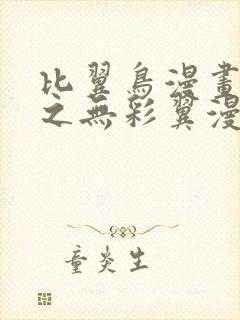 比翼鳥漫畫
之無彩翼漫
童炎生